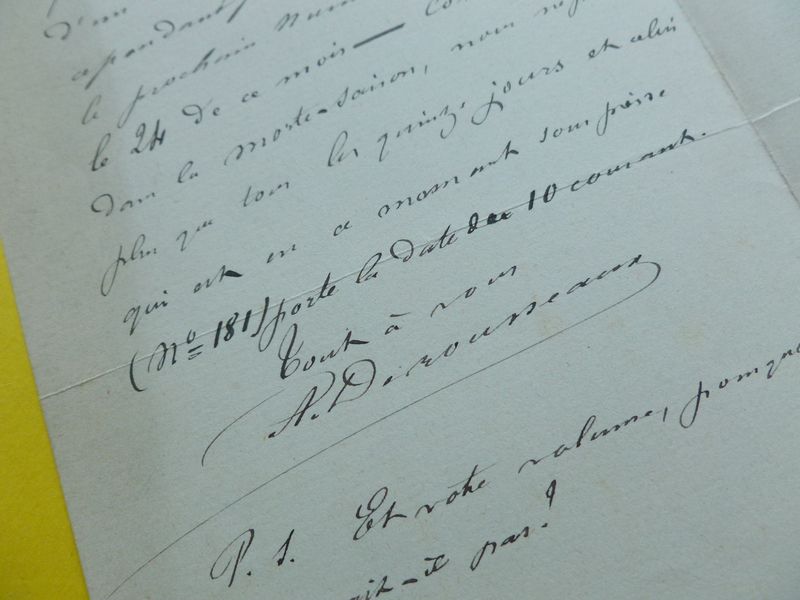 d'un
cependant
le prochain num
le 24 de ce mois — Co
dans la morte-saison, nous ne
plus que tous les quinze jours et celui
qui est en ce moment sous presse
(No 181) porte la date du 10 courant.
Tout à vous
A. Desrousseaux
P. S. Et votre volume, pourquoi
it-il pas!